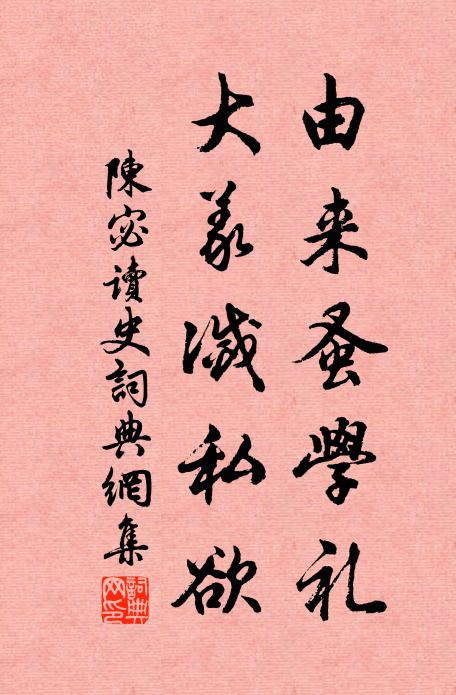 由来蚤學礼
大義滅私欲
陳宓讀史詞典網集
詞典網印